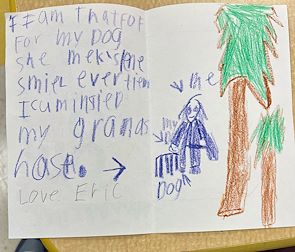 I Am ThatFOF
For my DOG
She mek's me
smiel ever tiem
I cuminsied
my granas
hase. →
Love Eric
me
DOG